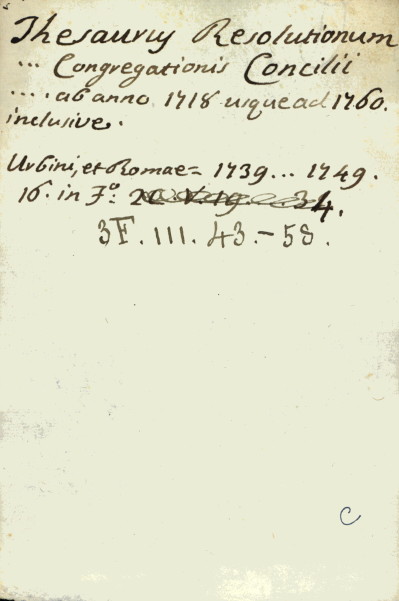 Thesaurus Resolutionum
... Congregationis Concilii
.... ab anno 1718 usque ad 1760.
inclusive.
Urbini, et Romae = 1739 ... 1749.
16. in Fº: 34.
3F. III. 43. - 58.
C